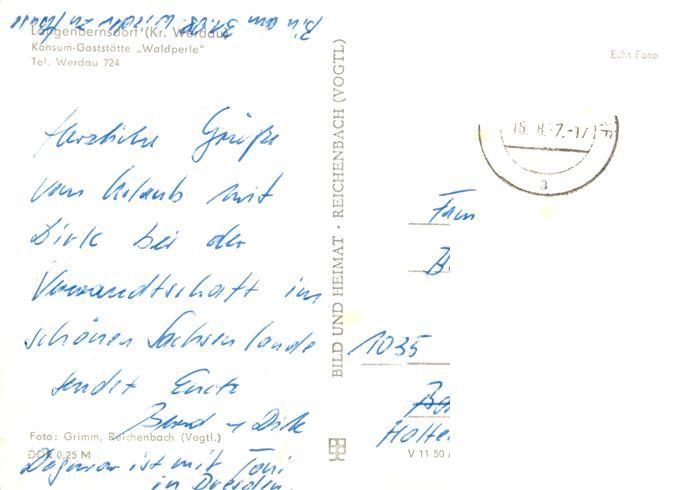 Bin am 31.8. wieder zu Hause
Langenbernsdorf (Kr. Werdau)
Konsum-Gaststätte „Waldperle"
Tel. Werdau 724
Echt Foto
Herzliche Grüße
vom Urlaub mit
Dirk bei der
Verwandtschaft im
schönen Sachsenlande
sendet Euch
Bernd + Dirk
Dagmar ist mit Toni
in Dresden
Foto: Grimm, Reichenbach (Vogtl.)
DDR 0,25 M
BILD UND HEIMAT · REICHENBACH (VOGTL)
Fam
1035
Holte
V 11 50